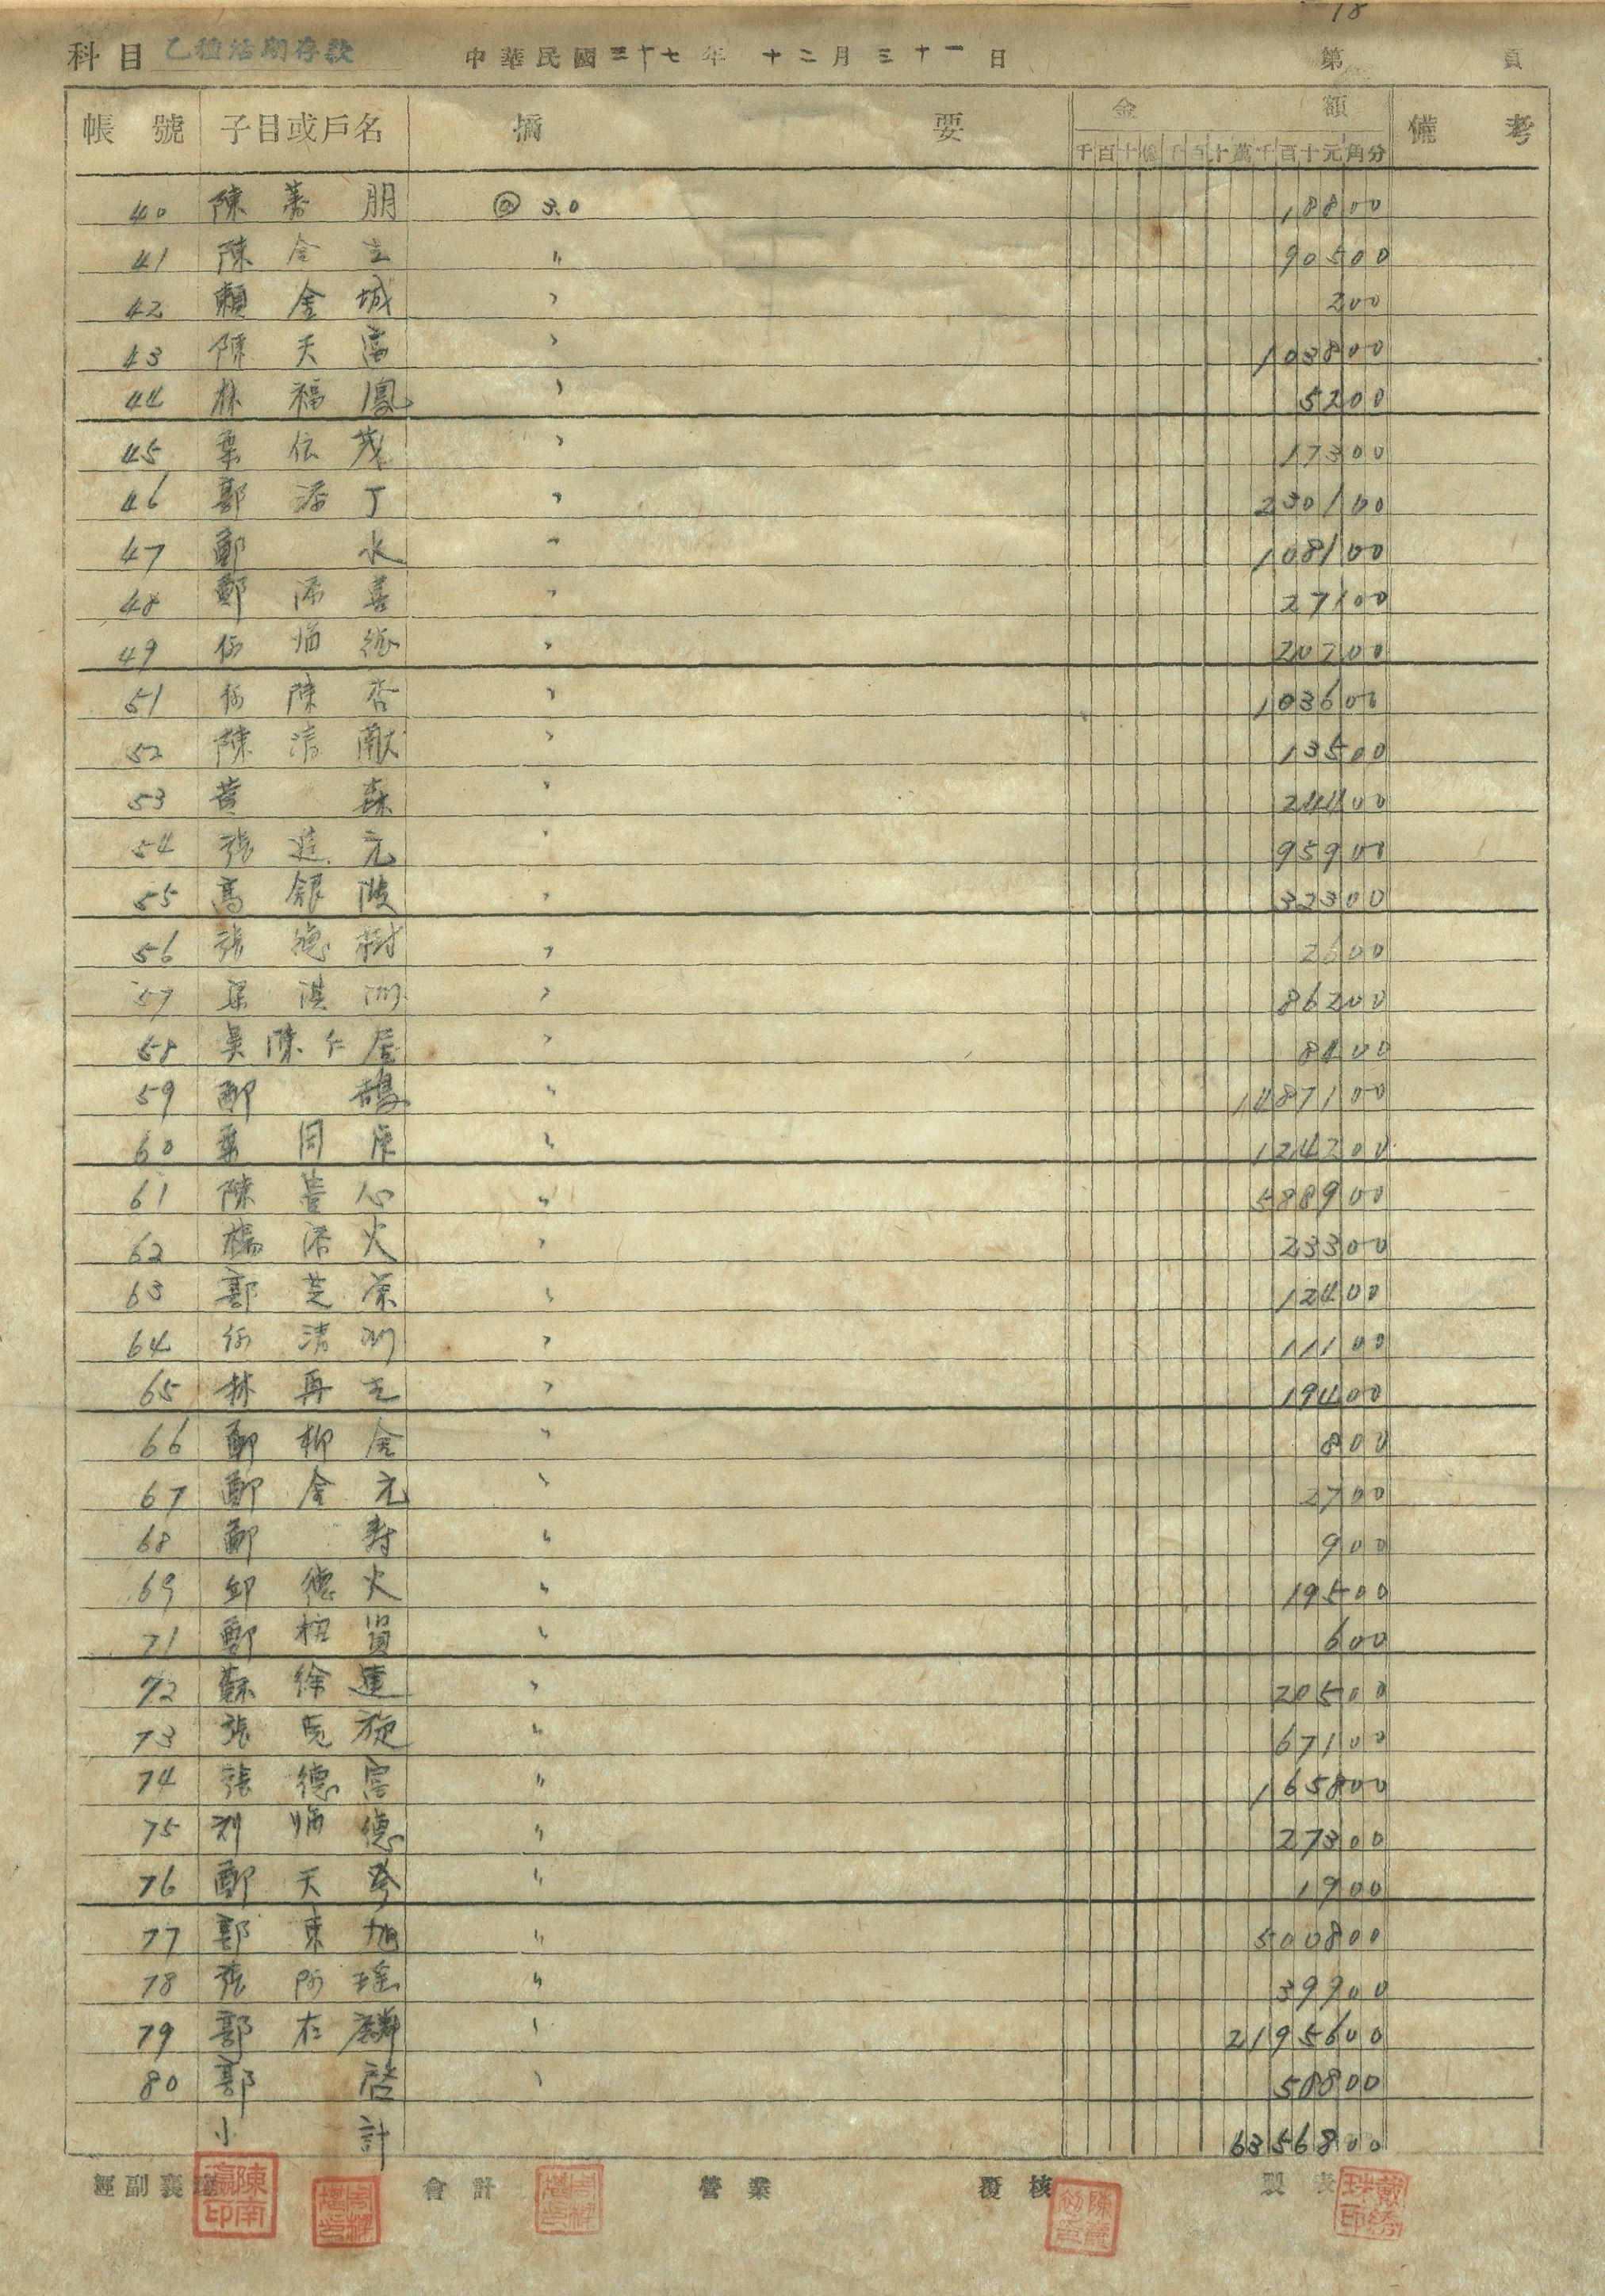 18
科目 乙種活期存款 中華民國三十七年 十二月三十一日 第 頁
帳號 子目或戶名 摘要 金額 備考
千百十億千百十萬千百十元角分
40 陳 朋 @ 3.0 18800
41 陳金 " 90500
42 賴金城 " 200
43 陳天富 " 103800
44 林福鳳 " 5200
45 葉伝茂 " 17300
46 郭添丁 " 230100
47 鄭水 " 108100
48 鄭添喜 " 27100
49 " 20200
51 何陳杏 " 103600
52 陳清献 " 13500
53 黃森 " 24400
54 張進元 " 95900
55 高銀 " 32300
56 張德樹 " 2600
57 梁淇洲 " 86200
58 吳陳仁 " 8100
59 鄭 " 1487100
60 葉同庚 " 124200
61 陳善心 " 588900
62 楊添火 " 23300
63 郭芝榮 " 12400
64 何清洲 " 11100
65 林再 " 19400
66 鄭柳金 " 800
67 鄭金元 " 2700
68 鄭寿 " 900
69 邱德火 " 19500
71 鄭 " 600
72 蘇徐連 " 20500
73 張 旋 " 67100
74 張德 " 165800
75 德 " 27300
76 鄭天 " 1900
77 郭東旭 " 500800
78 張阿瑤 " 39900
79 郭在麟 " 2195600
80 郭啓 " 50800
小計 6356800
經副襄理 會計 營業 覆核 製表